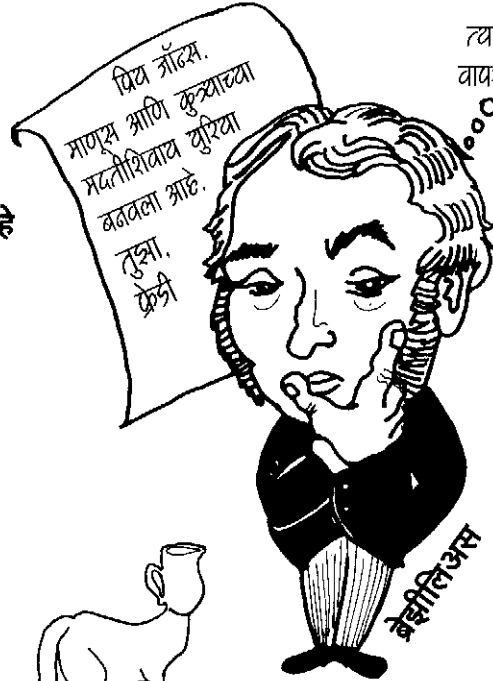 प्रिय जॉन्स.
माणूस आणि कुत्र्याच्या
मदतीशिवाय युरिया
बनवला आहे.
तुझा,
फ्रेडी
बेर्झीलिअस